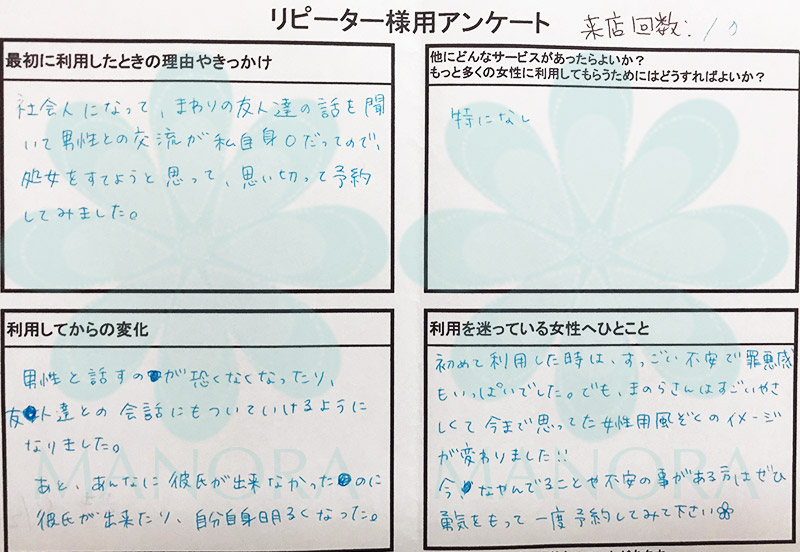 リピーター様用アンケート
来店回数:10
最初に利用したときの理由やきっかけ
社会人になって、まわりの友人達の話を聞
いて男性との交流が私自身0だってので、
処女をすてようと思って、思い切って予約
してみました。
他にどんなサービスがあったらよいか?
もっと多くの女性に利用してもらうためにはどうすればよいか?
特になし
利用してからの変化
男性と話すのが恐くなくなったり、
友人達との会話にもついていけるように
なりました。
あと、あんなに彼氏が出来なかったのに
彼氏が出来たり、自分自身明るくなった。
利用を迷っている女性へひとこと
初めて利用した時は、すっごい不安で罪悪感
もいっぱいでした。でも、まのらさんはすごいやさ
しくて今まで思ってた女性用風ぞくのイメージ
が変わりました!!
今なやんでることや不安の事がある方はぜひ
勇気をもって一度予約してみて下さい
MANORA
MANORA